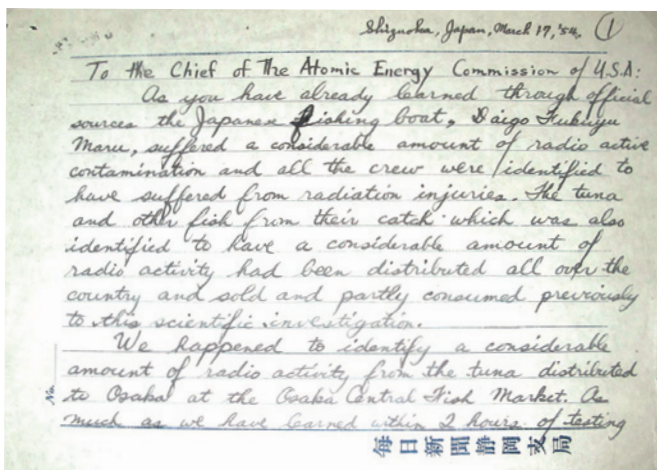 Shizuoka, Japan, March 17, '54. ①
To the Chief of The Atomic Energy Commission of U.S.A:
As you have already learned through official
sources the Japanese fishing boat, Daigo Fukuryu
Maru, suffered a considerable amount of radio active
contamination and all the crew were identified to
have suffered from radiation injuries. The tuna
and other fish from their catch which was also
identified to have a considerable amount of
radio activity had been distributed all over the
country and sold and partly consumed previously
to this scientific investigation.
We happened to identify a considerable
amount of radio activity from the tuna distributed
to Osaka at the Osaka Central Fish Market. As
much as we have learned within 2 hours of testing
No.
毎日新聞静岡支局